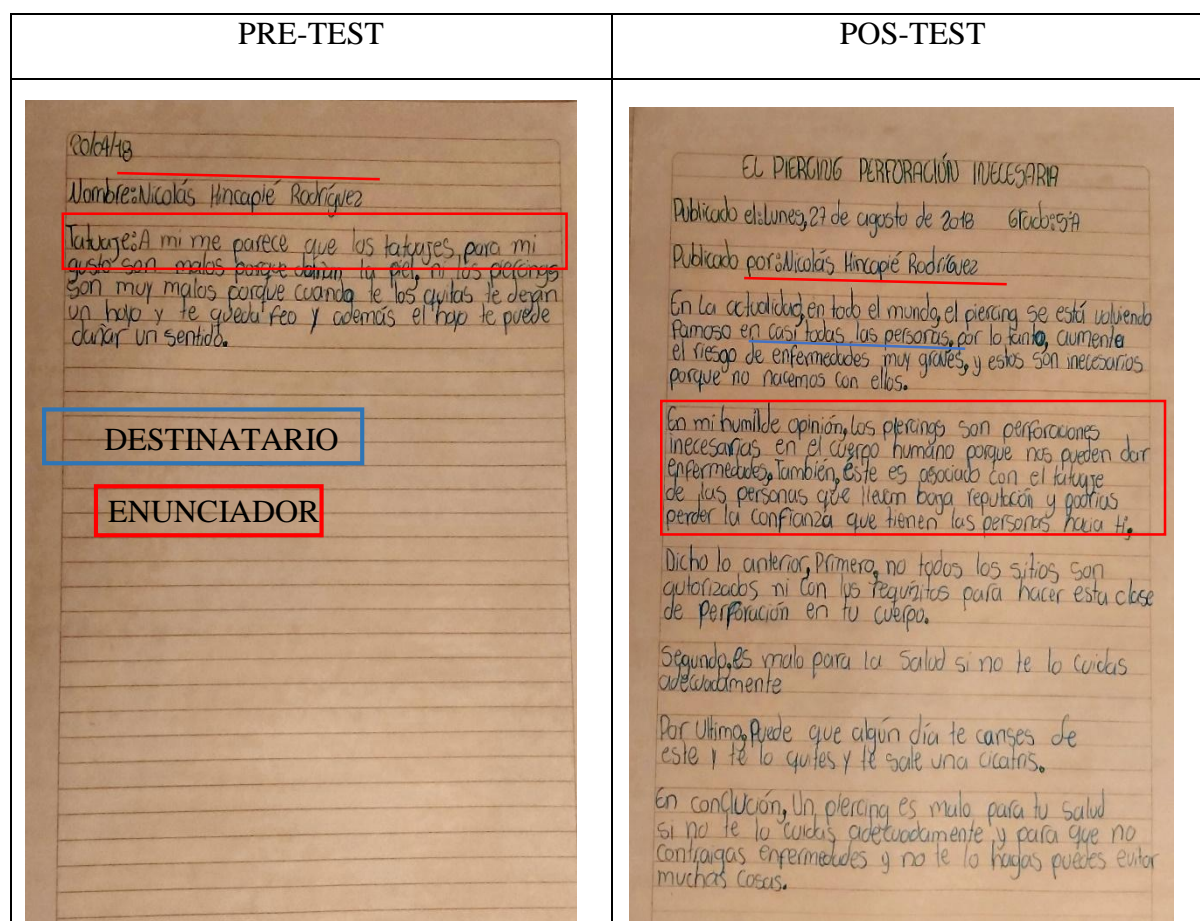 PRE-TEST
20/04/18
Nombre: Nicolás Hincapié Rodríguez
Tatuaje: A mi me parece que los tatuajes para mi
gusto son malos porque dañan la piel, ni los piercings
son muy malos porque cuando te los quitas te dejan
un hojo y te queda feo y además el hojo te puede
dañar un sentido.
DESTINATARIO
ENUNCIADOR
POS-TEST
EL PIERCING PERFORACIÓN INECESARIA
Publicado el: Lunes, 27 de agosto de 2018 Grado: 5ºA
Publicado por: Nicolás Hincapié Rodríguez
En La actualidad, en todo el mundo, el piercing se está volviendo
famoso en casi todas las personas, por lo tanto, aumenta
el riesgo de enfermedades muy graves, y estos son inecesarios
porque no nacemos con ellos.
En mi humilde opinión, Los piercings son perforaciones
inecesarias en el cuerpo humano porque nos pueden dar
enfermedades, También, éste es asociado con el tatuaje
de las personas que llevan baja reputación y podrías
perder la confianza que tienen las personas hacia tí,
Dicho lo anterior, Primero, no todos los sitios son
autorizados ni con los requisitos para hacer esta clase
de perforación en tu cuerpo.
Segundo, es malo para la Salud si no te lo cuidas
adecuadamente
Por Ultimo, Puede que algún día te canses de
este y te lo quites y te sale una cicatris.
En conclución, Un piercing es malo para tu salud
si no te lo cuidas adecuadamente y para que no
contraigas enfermedades y no te lo hagas puedes evitar
muchas cosas.